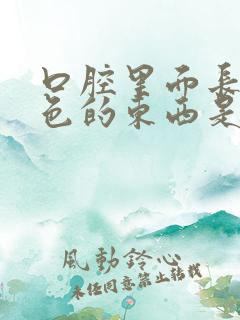 口腔里面長
色的东西是
風動鈴心
未经同意禁止转载